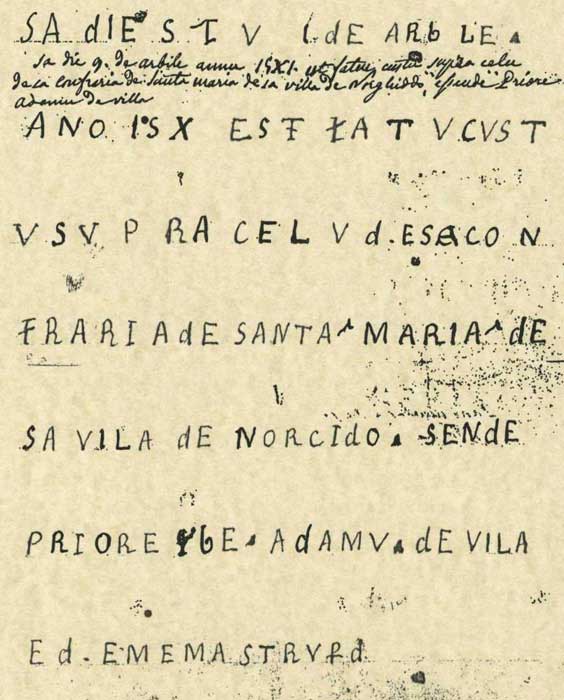 SA dIE S T V I dE ARb LE.
sa die 9. de arbile annu 15X1. est fatu custu supra celu
de sa confraria de Santa maria de sa villa de Norghiddo, essende Priore
Adamu de villa
ANO 1°S X EST ŁATV CVST
V S V P RA CEL V d.ESA CO N
FRARIA dE SANTA^ MARIA^ dE
SA VILA dE NORCIdO. SENdE
PRIORE bE. AdAMV. dE VILA
E d. EMEMASTRV